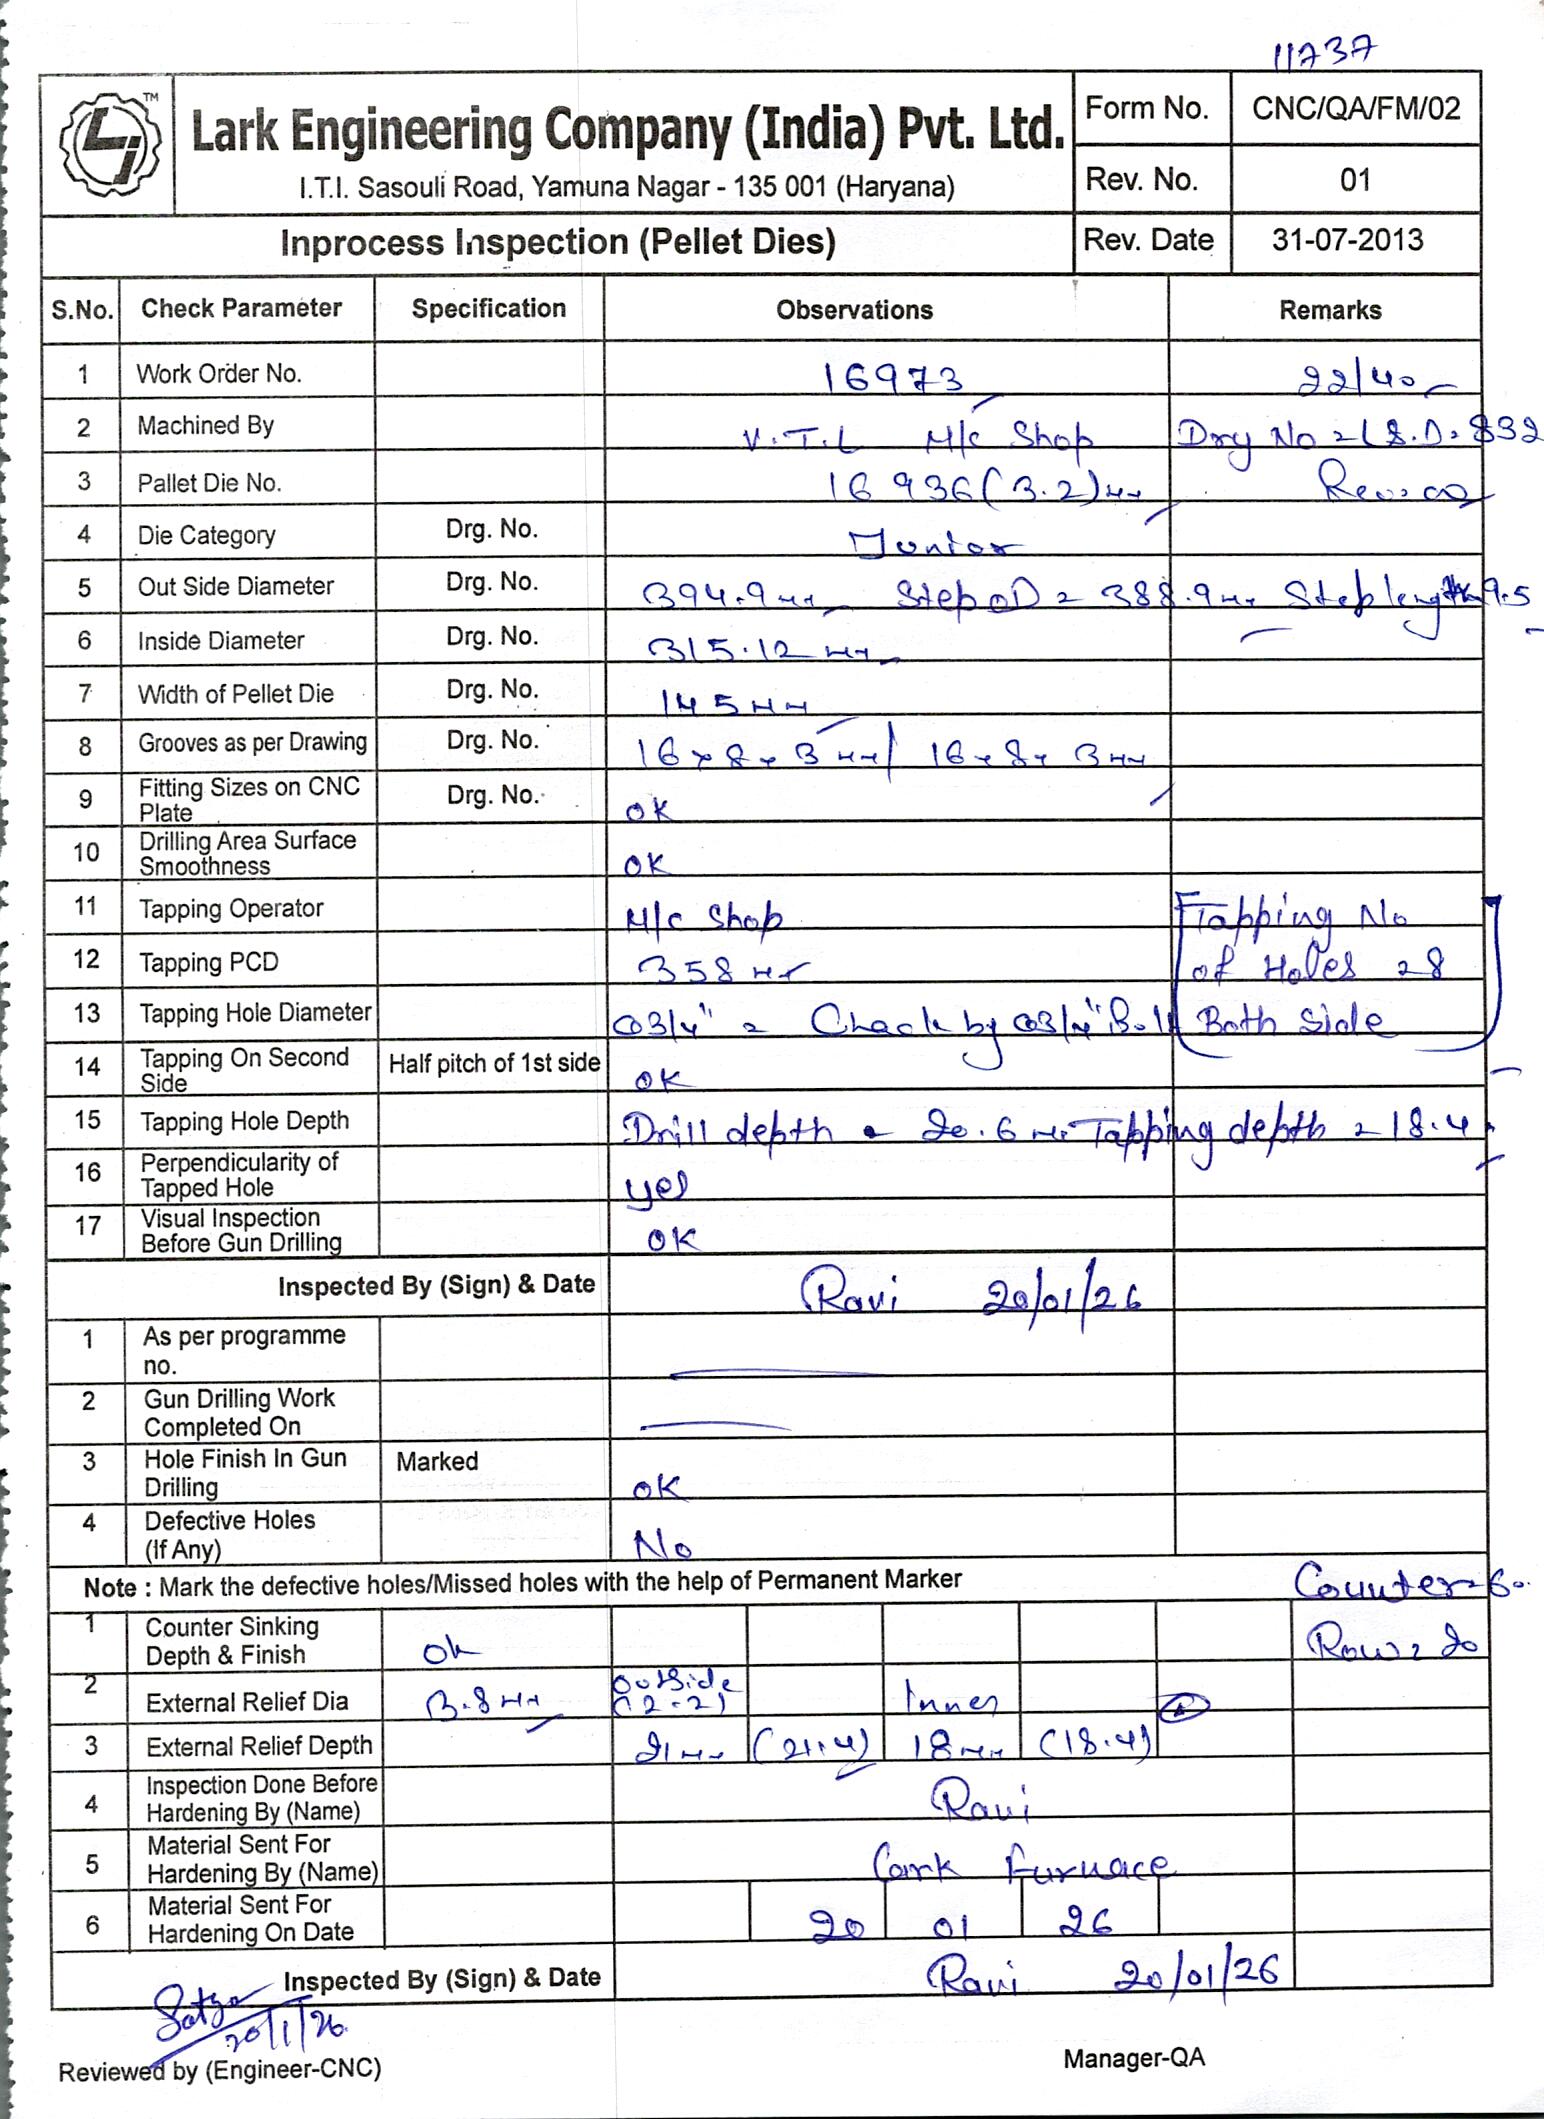 11737
TM
Lark Engineering Company (India) Pvt. Ltd.
I.T.I. Sasouli Road, Yamuna Nagar - 135 001 (Haryana)
Form No. CNC/QA/FM/02
Rev. No. 01
Inprocess Inspection (Pellet Dies) Rev. Date 31-07-2013
S.No. Check Parameter Specification Observations Remarks
1 Work Order No. 16973 22/40
2 Machined By V.T.L M/c Shop Drg No = L.S.D. 832
3 Pallet Die No. 16936 (3.2) mm
4 Die Category Drg. No. Junior
5 Out Side Diameter Drg. No. 394.9 mm Step OD = 388.9 mm Step length 9.5
6 Inside Diameter Drg. No. 315.12 mm
7 Width of Pellet Die Drg. No. 145 mm
8 Grooves as per Drawing Drg. No. 16 x 8 x 3 mm / 16 x 8 x 3 mm
9 Fitting Sizes on CNC Plate Drg. No. OK
10 Drilling Area Surface Smoothness OK
11 Tapping Operator M/c Shop Tapping No
12 Tapping PCD 358 mm of Holes = 8
13 Tapping Hole Diameter Ø3/4" = Check by Ø3/4" Bolt Both Side
14 Tapping On Second Side Half pitch of 1st side OK
15 Tapping Hole Depth Drill depth = 20.6 mm Tapping depth = 18.4
16 Perpendicularity of Tapped Hole yes
17 Visual Inspection Before Gun Drilling OK
Inspected By (Sign) & Date Ravi 20/01/26
1 As per programme no.
2 Gun Drilling Work Completed On
3 Hole Finish In Gun Drilling Marked OK
4 Defective Holes (If Any) No
Note : Mark the defective holes/Missed holes with the help of Permanent Marker Counter = 60
1 Counter Sinking Depth & Finish Ok Row = 20
2 External Relief Dia 3.8 mm Outside (2-2) Inner
3 External Relief Depth 21 mm (21.4) 18 mm (18.4)
4 Inspection Done Before Hardening By (Name) Ravi
5 Material Sent For Hardening By (Name) Lark Furnace
6 Material Sent For Hardening On Date 20 01 26
Inspected By (Sign) & Date Ravi 20/01/26
Satya
20/1/26
Reviewed by (Engineer-CNC) Manager-QA